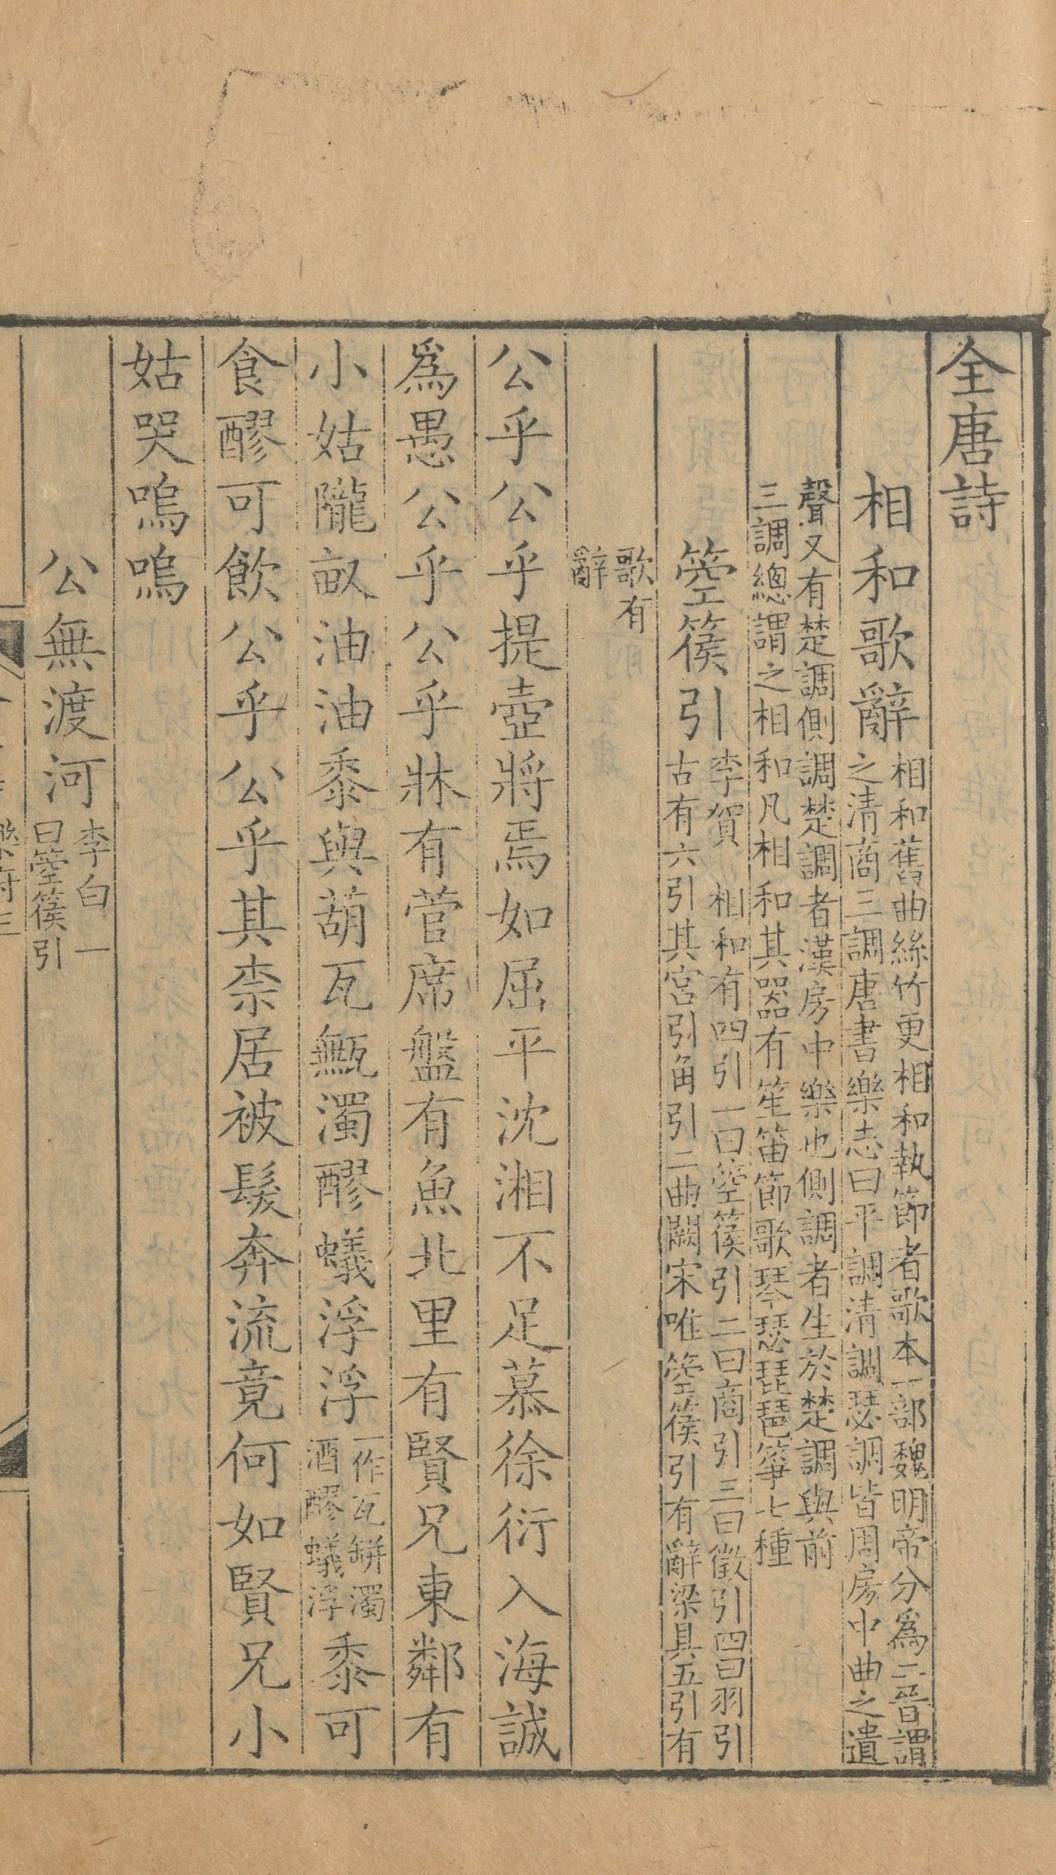 全唐詩
相和歌辭
相和舊曲絲竹更相和執節者歌本一部魏明帝分爲二晉謂
之清商三調唐書樂志曰平調清調瑟調皆周房中曲之遺
聲又有楚調側調楚調者漢房中樂也側調者生於楚調與前
三調總謂之相和凡相和其器有笙笛節歌琴瑟琵琶箏七種
箜篌引
李賀 相和有四引一曰箜篌引二曰商引三曰徵引四曰羽引
古有六引其宮引角引二曲闕宋唯箜篌引有辭梁具五引有
歌有
辭
公乎公乎提壺將焉如屈平沈湘不足慕徐衍入海誠
爲愚公乎公乎牀有菅席盤有魚北里有賢兄東鄰有
小姑隴畝油油黍與葫瓦甒濁醪蟻浮浮一作瓦缾濁
酒醪蟻浮黍可
食醪可飲公乎公乎其柰居被髮奔流竟何如賢兄小
姑哭嗚嗚
公無渡河李白 一
曰箜篌引
樂府三